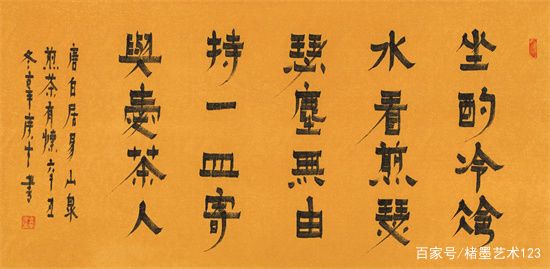 坐酌冷
水看煎瑟
瑟塵無由
持一皿寄
與愛茶人
唐白居易山泉
煎茶有懷辛丑
冬書
百家号/楮墨艺术123